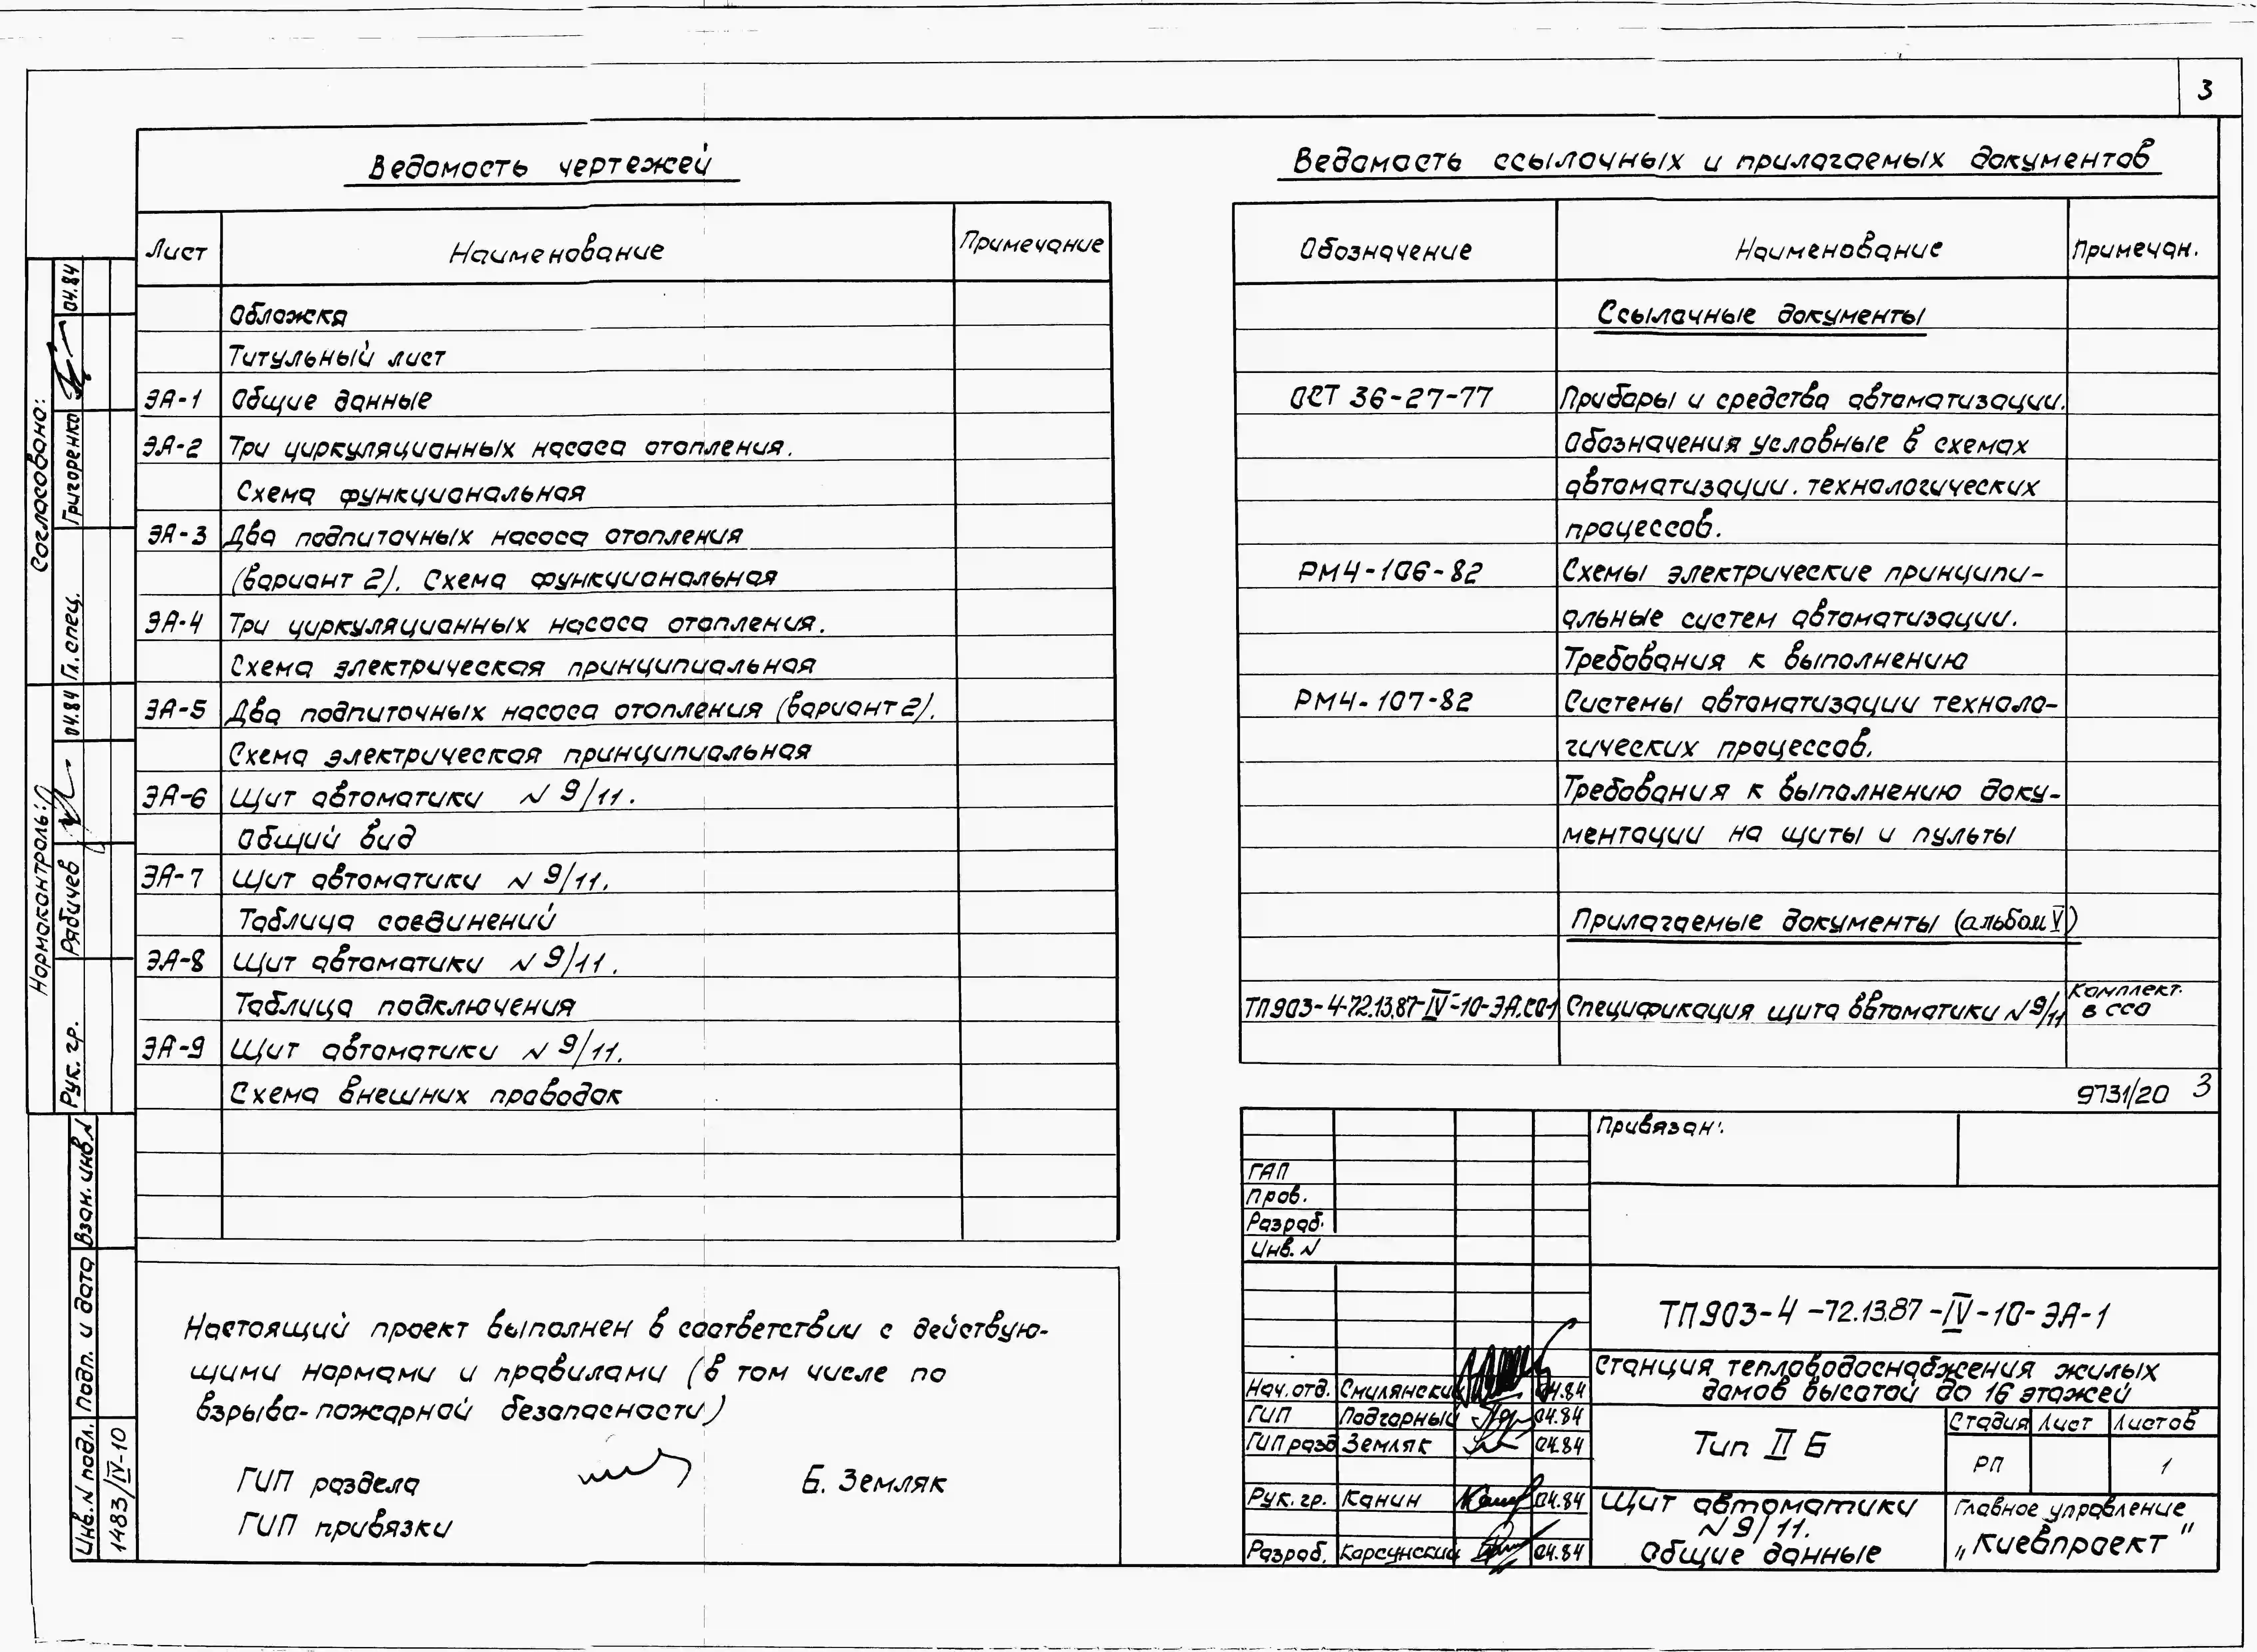 3
Ведомость чертежей
Лист Наименование Примечание
Обложка
Титульный лист
ЭА-1 Общие данные
ЭА-2 Три циркуляционных насоса отопления.
Схема функциональная
ЭА-3 Два подпиточных насоса отопления
(вариант 2). Схема функциональная
ЭА-4 Три циркуляционных насоса отопления.
Схема электрическая принципиальная
ЭА-5 Два подпиточных насоса отопления (вариант 2).
Схема электрическая принципиальная
ЭА-6 Щит автоматики N 9/11.
Общий вид
ЭА-7 Щит автоматики N 9/11.
Таблица соединений
ЭА-8 Щит автоматики N 9/11.
Таблица подключения
ЭА-9 Щит автоматики N 9/11.
Схема внешних проводок
Настоящий проект выполнен в соответствии с действую-
щими нормами и правилами (в том числе по
взрыво-пожарной безопасности)
ГИП раздела Б. Земляк
ГИП привязки
Ведомость ссылочных и прилагаемых документов
Обозначение Наименование Примечан.
Ссылочные документы
ОСТ 36-27-77 Приборы и средства автоматизации.
Обозначения условные в схемах
автоматизации. технологических
процессов.
РМ4-106-82 Схемы электрические принципи-
альные систем автоматизации.
Требования к выполнению
РМ4-107-82 Системы автоматизации техноло-
гических процессов.
Требования к выполнению доку-
ментации на щиты и пульты
Прилагаемые документы (альбом V)
ТП903-4-72.13.87-IV-10-ЭА.СО1 Спецификация щита автоматики N 9/11 Комплект.
в ссо
9731/20 3
Привязан:
ГАП
Пров.
Разраб.
Инв. N
ТП903-4-72.13.87-IV-10-ЭА-1
Станция тепловодоснабжения жилых
домов высотой до 16 этажей
Нач. отд. Смилянский 04.84
ГИП Подгорный 04.84
ГИП разд Земляк 04.84
Рук. гр. Канин 04.84
Разраб. Корсунский 04.84
Тип II Б
Стадия Лист Листов
РП 1
Щит автоматики
N 9/11.
Общие данные
Главное управление
„Киевпроект"
Согласовано:
Гл. спец. Григоренко 04.84
Нормоконтроль:
Рук. гр. Рябичев 04.84
Взан. инв. N
Подп. и дата
Инв. N подл.
1483/IV-10